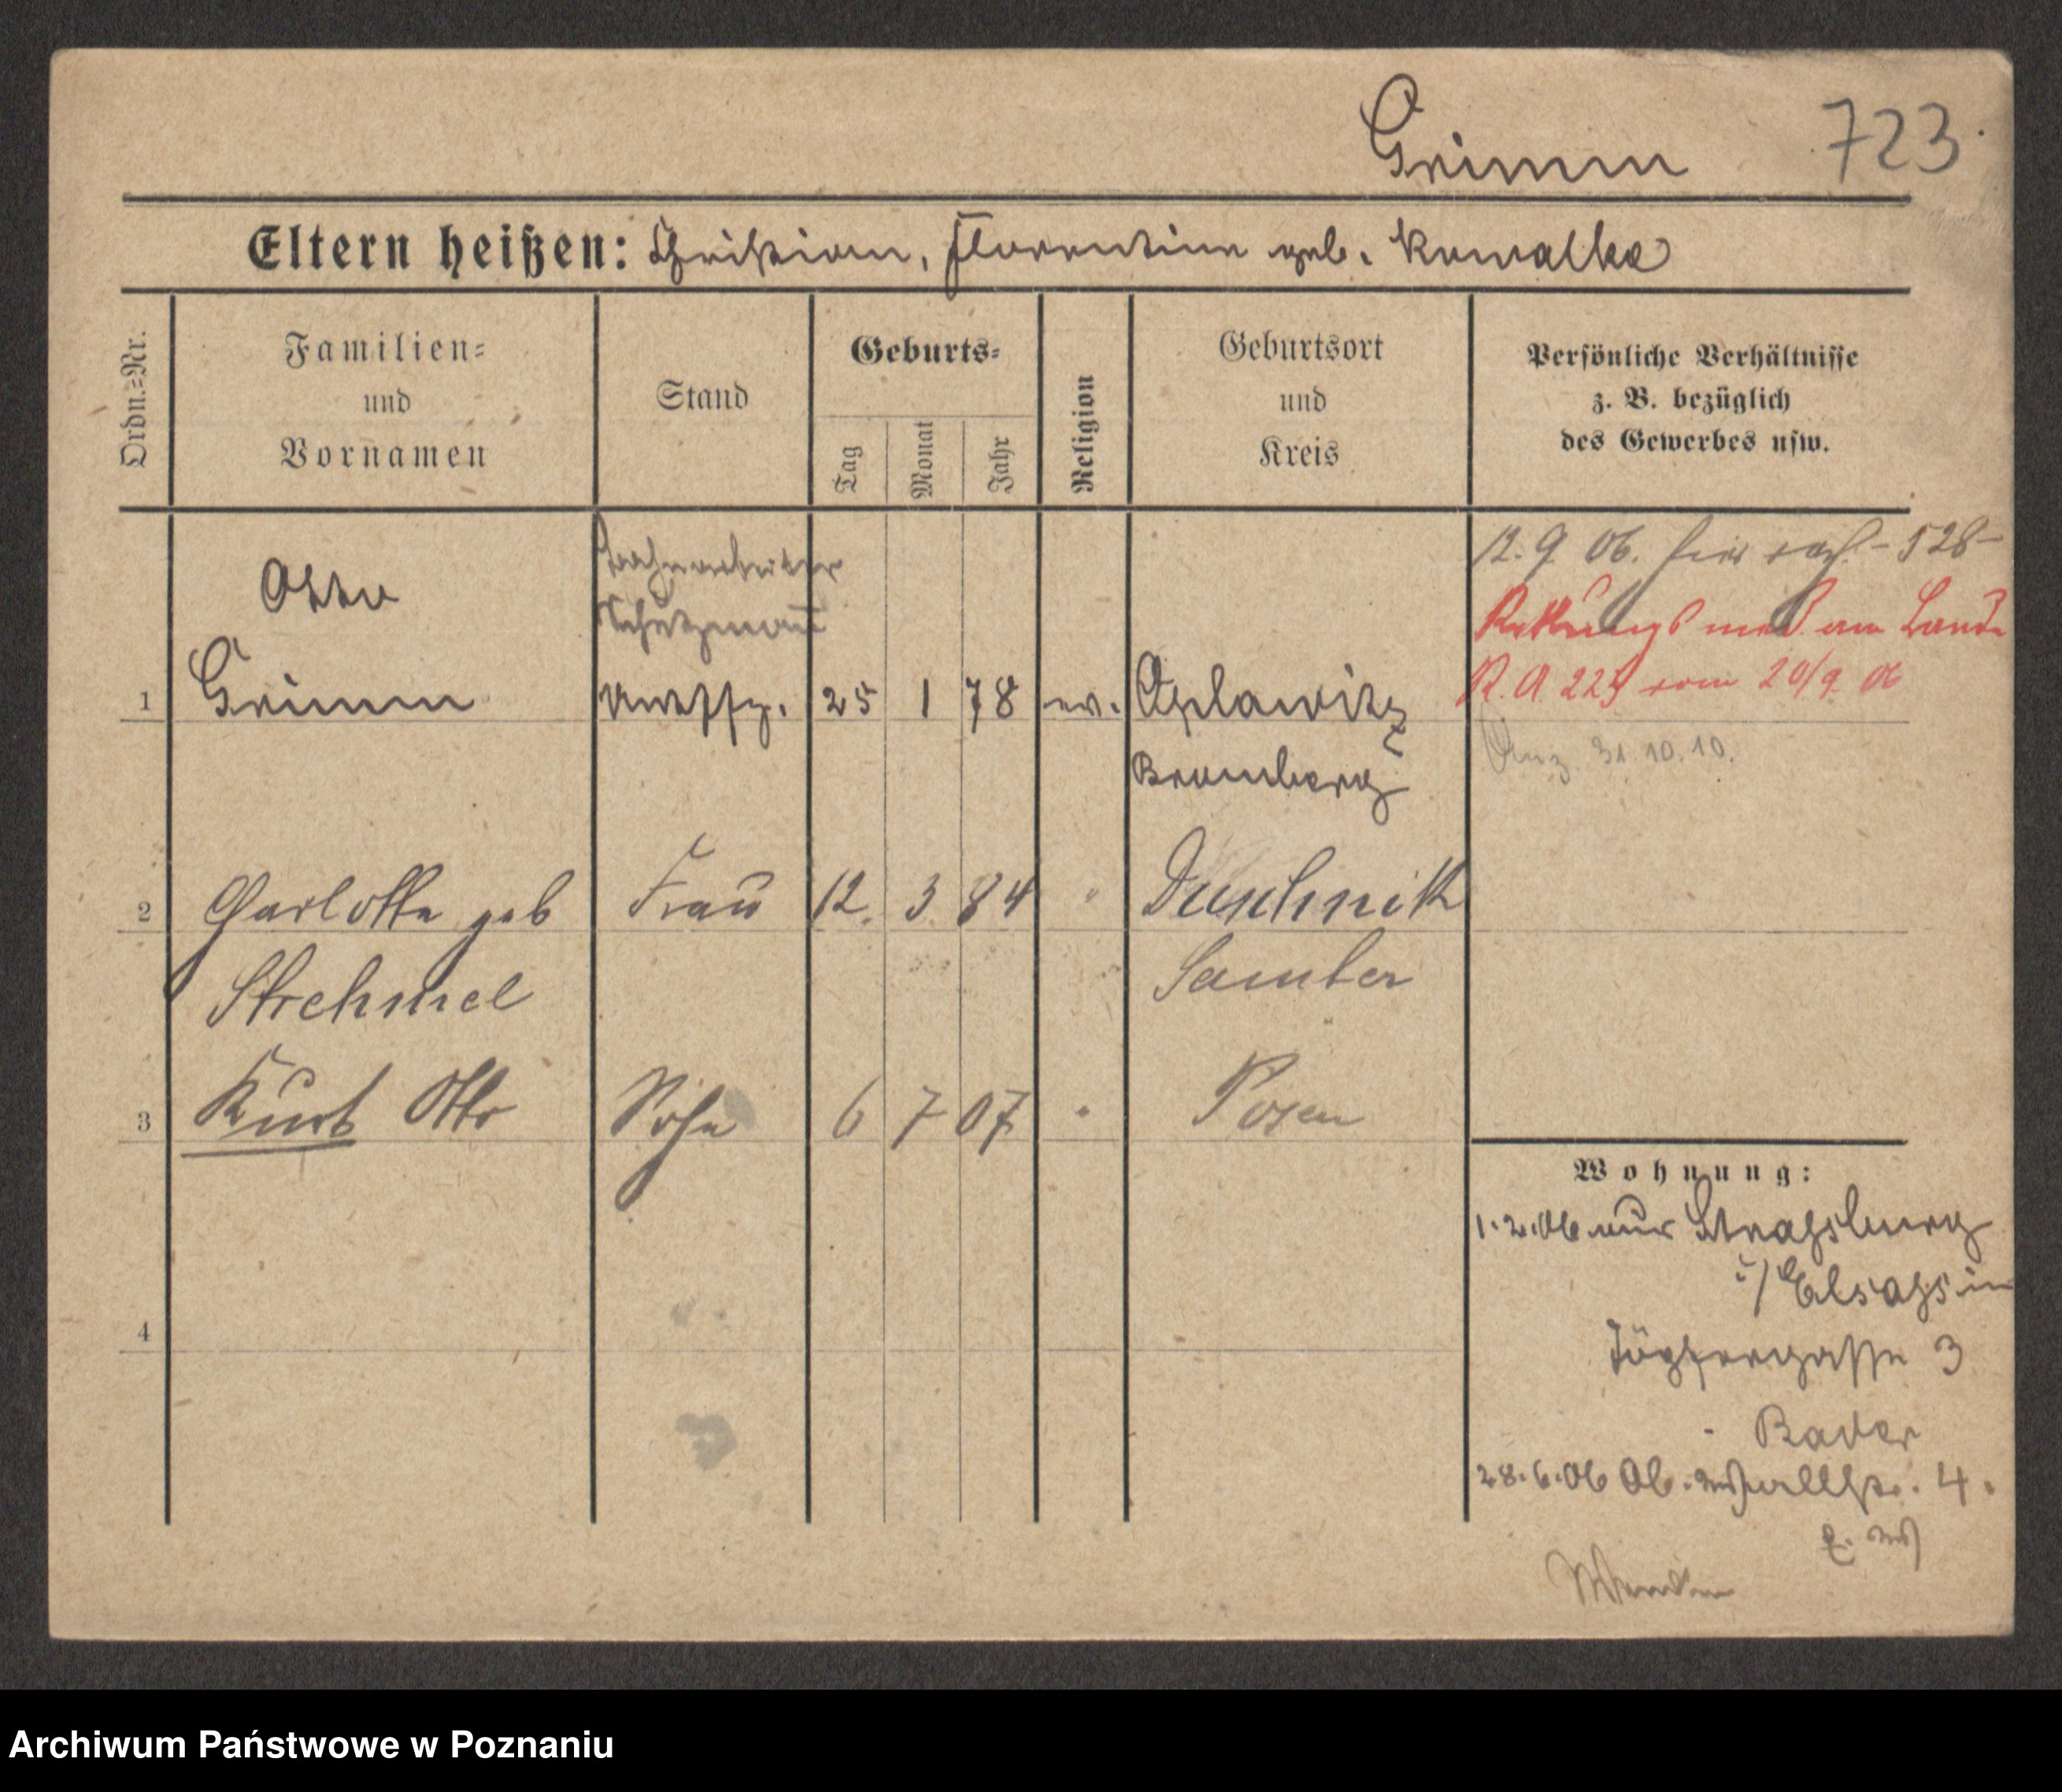 Grimm 723.
Eltern heißen: Christian, Florentine geb. Kowalke
Ordn.=Nr.
Familien=
und
Vornamen
Stand
Geburts=
Tag
Monat
Jahr
Religion
Geburtsort
und
Kreis
Persönliche Verhältnisse
z. B. bezüglich
des Gewerbes usw.
12. 9. 06. hier - 528 -
R. A. 225 vom 20/9. 06
Anz. 31. 10. 10.
Otto
Schutzmañ
1 Grimm 25 1 78 ev.
Bromberg
2 Charlotte geb Fraŭ 12. 3 84 " Duschnik
Strehmel Samter
3 Kŭrt Otto Sohn 6 7 07 " Posen
4
Wohnung:
1. 2. 06 aŭs Strassburg
i/ Elsass in
Töpfergasse 3
- Bader
28. 6. 06 Ob. Wallstr. 4.